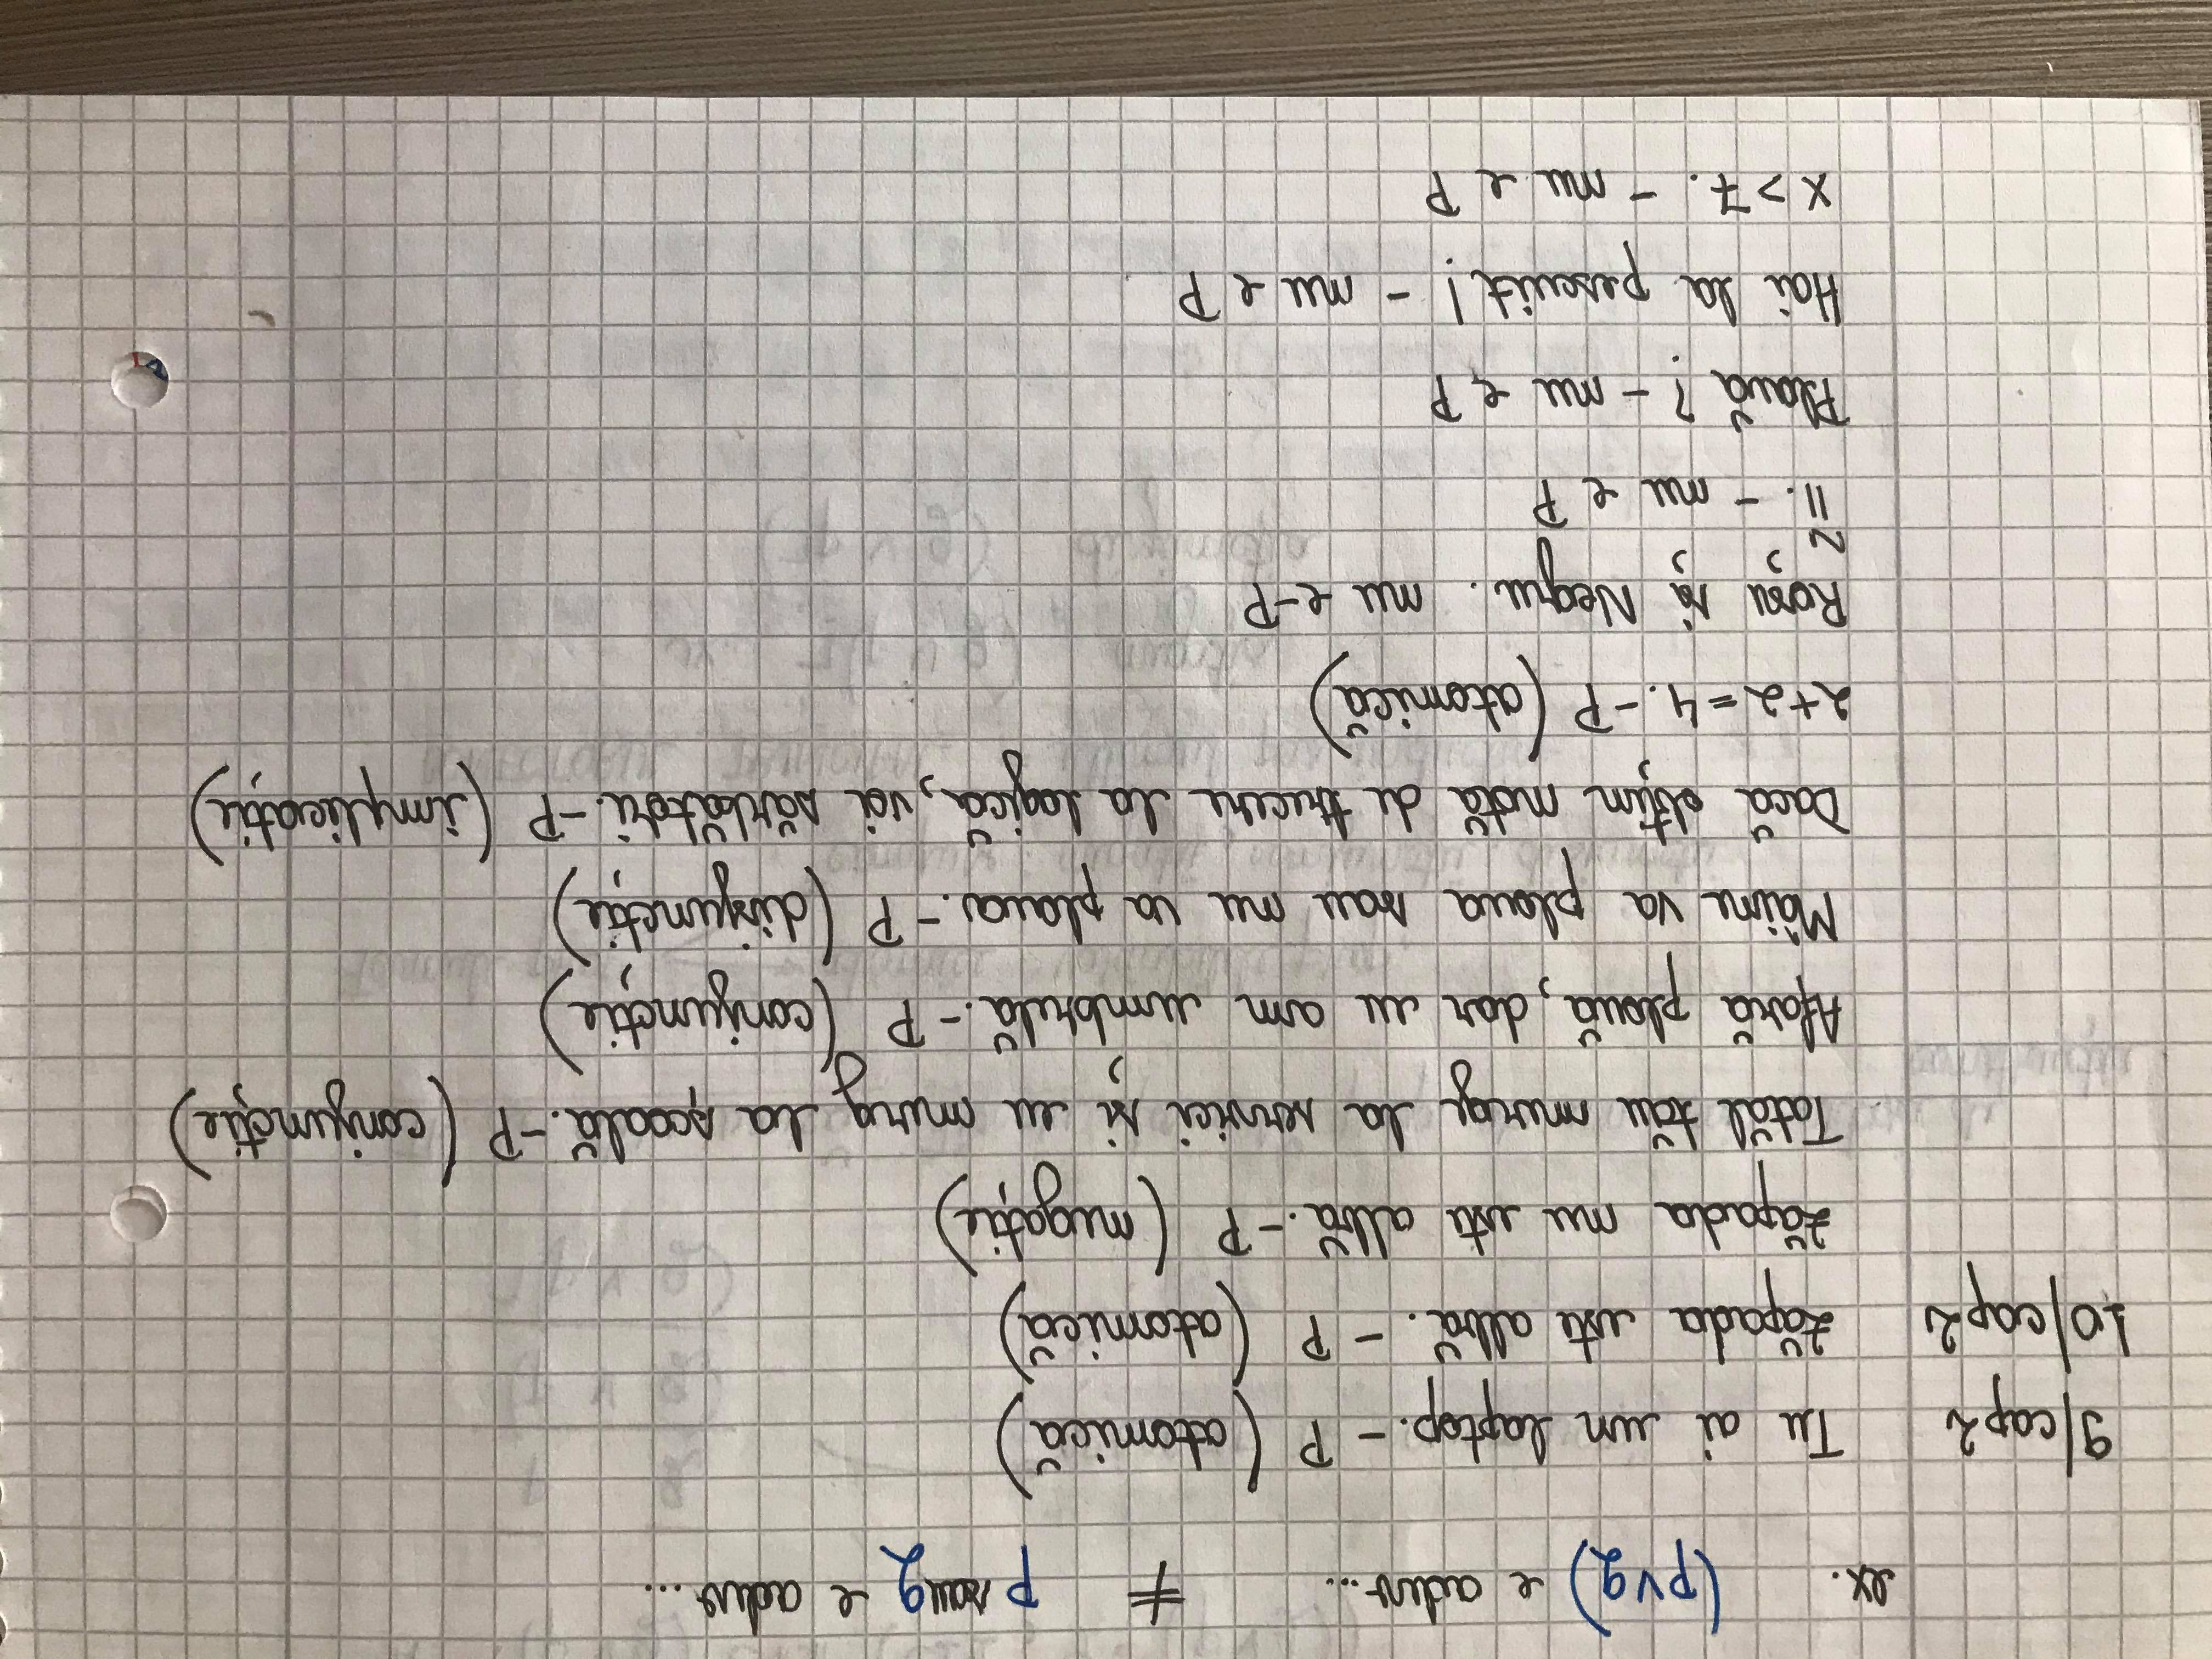 ex. (p∨q) e adev... ≠ p sau q e adev...
9/cap2 Tu ai un laptop. - P (atomică)
10/cap2 Zăpada este albă. - P (atomică)
Zăpada nu este albă. - P (negație)
Tatăl tău merge la servici și eu merg la școală. - P (conjuncție)
Afară plouă, dar eu am umbrelă. - P (conjuncție)
Mâine va ploua sau nu va ploua. - P (disjuncție)
Dacă obțin notă de trecere la logică, voi sărbători. - P (implicație)
2+2=4. - P (atomică)
Roșu și Negru. nu e - P
~
11. - nu e P
Plouă? - nu e P
Hai la pescuit! - nu e P
x>7. - nu e P